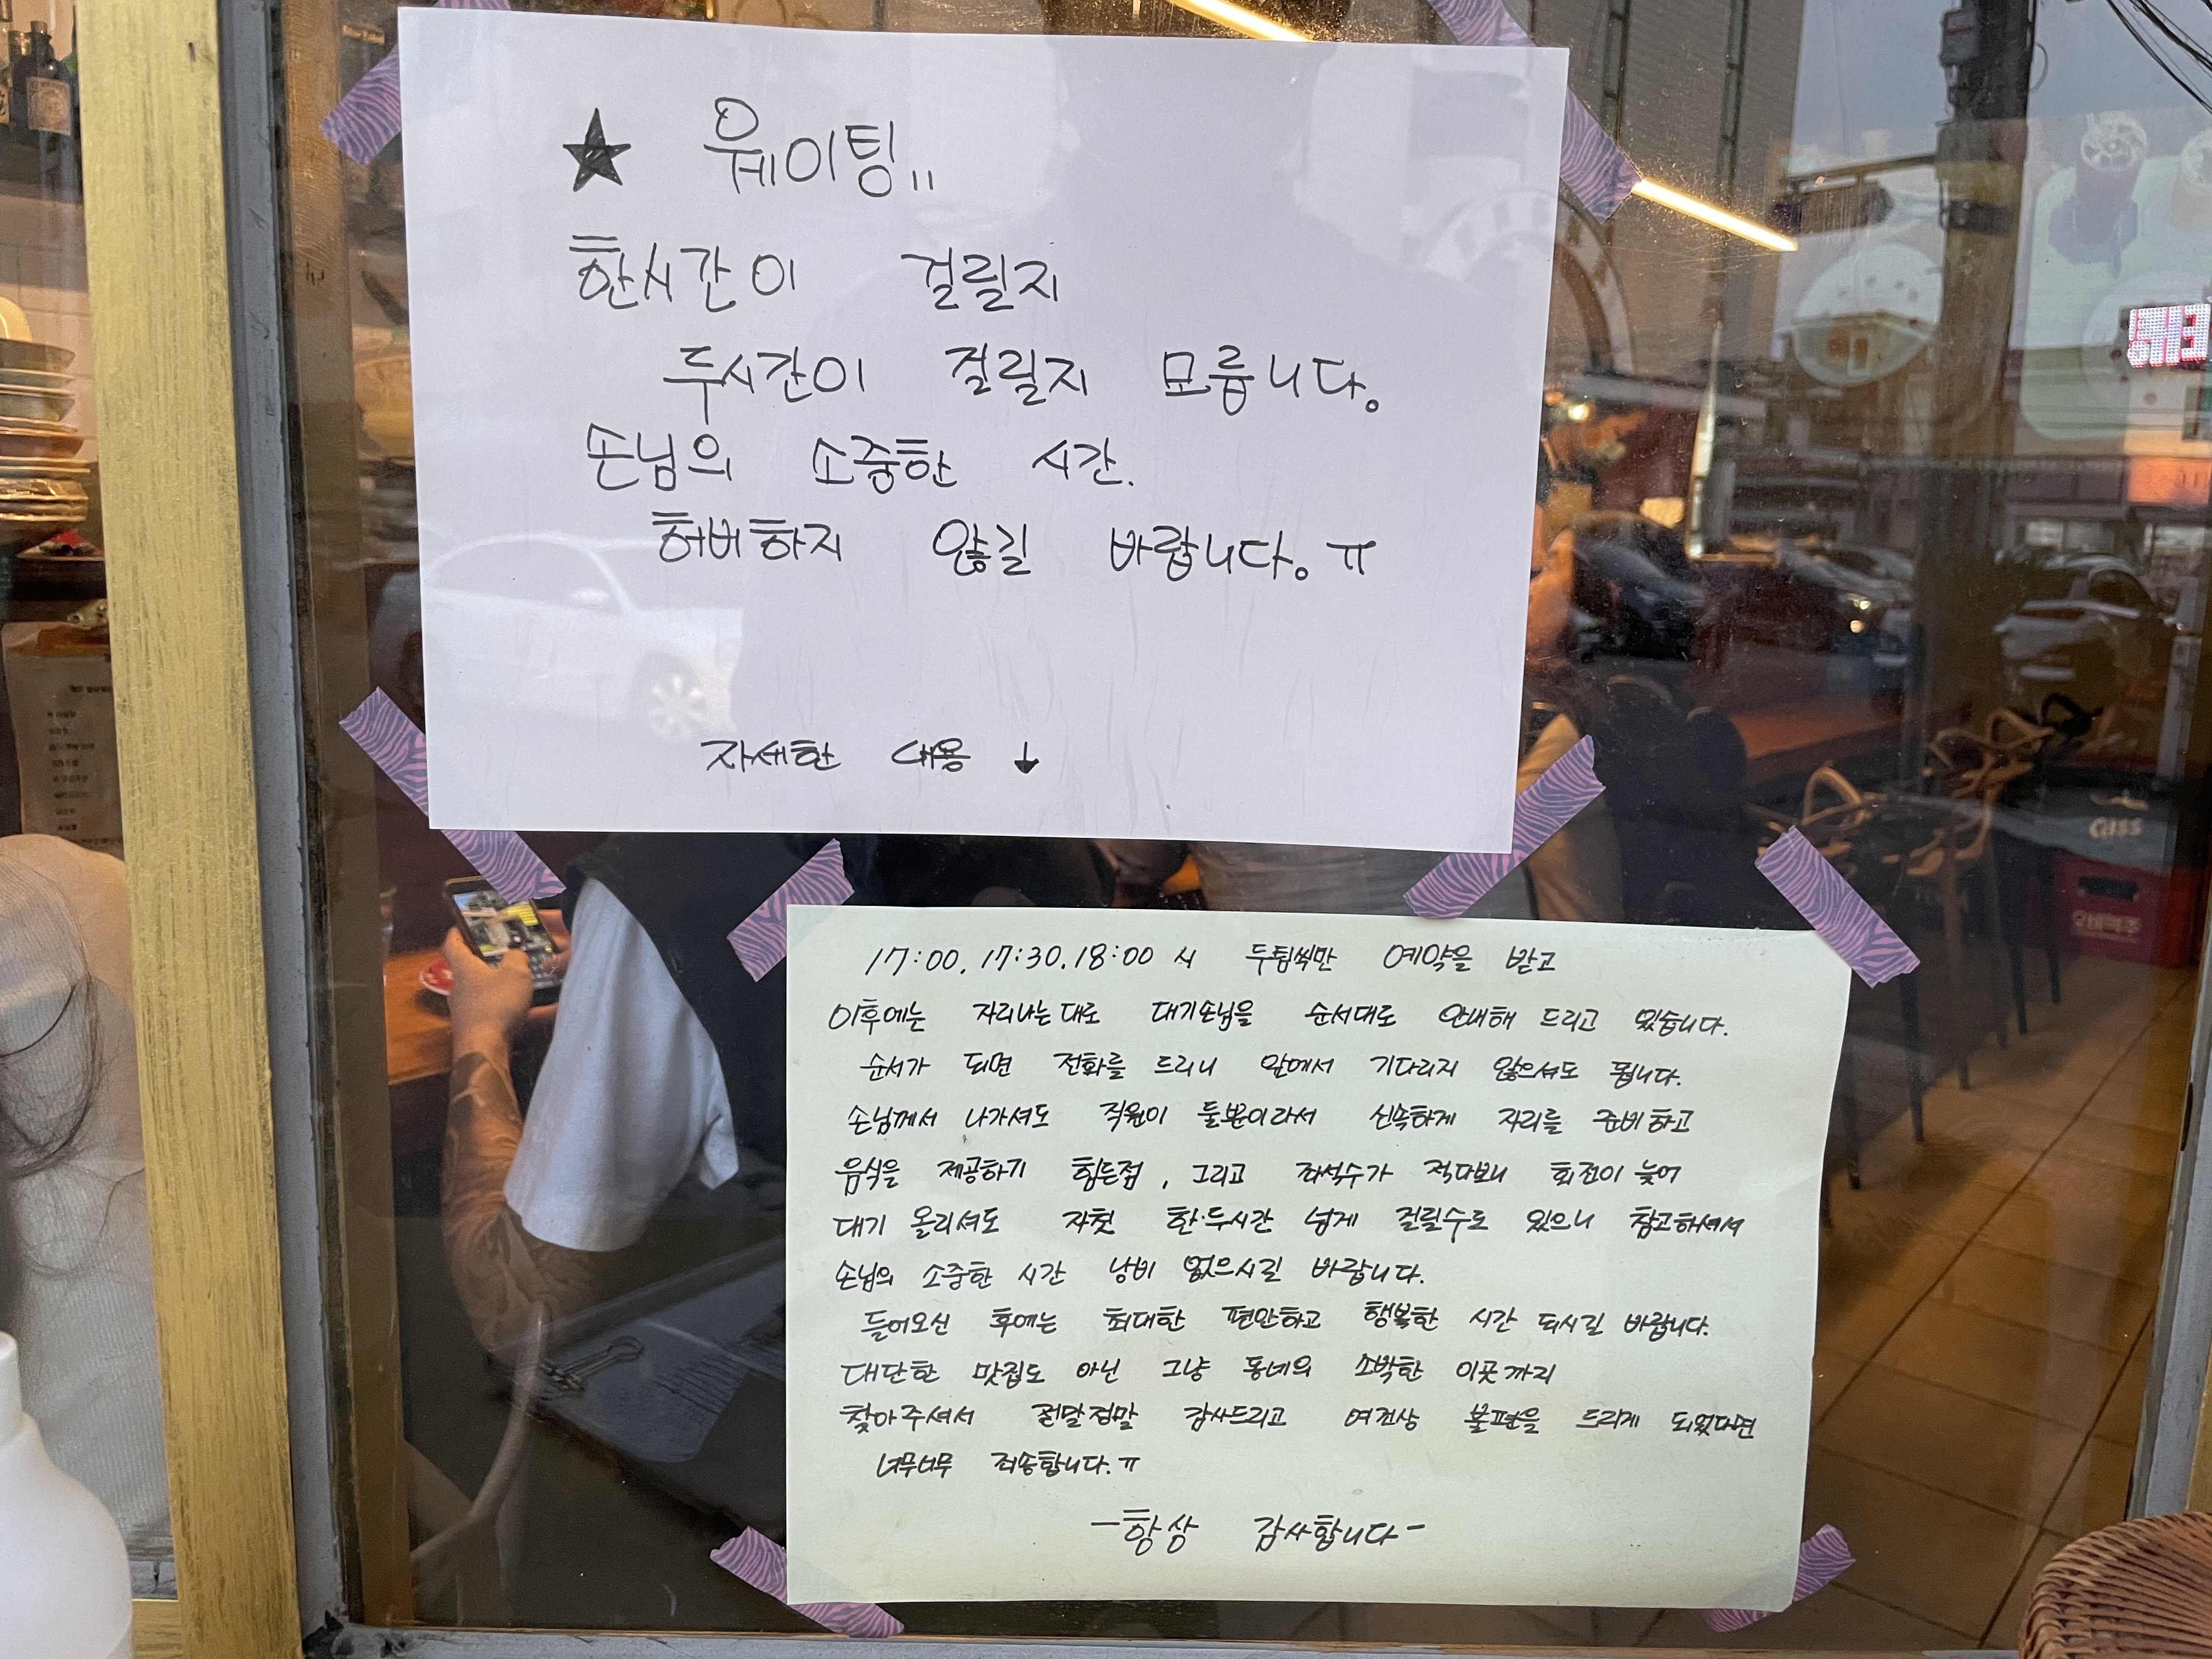 ★ 웨이팅..
한시간이 걸릴지
두시간이 걸릴지 모릅니다.
손님의 소중한 시간.
허비하지 않길 바랍니다. ㅠ
자세한 내용 ↓
17:00, 17:30, 18:00 시 두팀씩만 예약을 받고
이후에는 자리나는대로 대기손님을 순서대로 안내해 드리고 있습니다.
순서가 되면 전화를 드리니 앞에서 기다리지 않으셔도 됩니다.
손님께서 나가셔도 직원이 둘뿐이라서 신속하게 자리를 준비하고
음식을 제공하기 힘든점, 그리고 좌석수가 적다보니 회전이 늦어
대기 올리셔도 자칫 한·두시간 넘게 걸릴수도 있으니 참고하셔서
손님의 소중한 시간 낭비 없으시길 바랍니다.
들어오신 후에는 최대한 편안하고 행복한 시간 되시길 바랍니다.
대단한 맛집도 아닌 그냥 동네의 소박한 이곳까지
찾아주셔서 정말정말 감사드리고 여건상 불편을 드리게 되었다면
너무너무 죄송합니다. ㅠ
-항상 감사합니다-
CASS
오비맥주